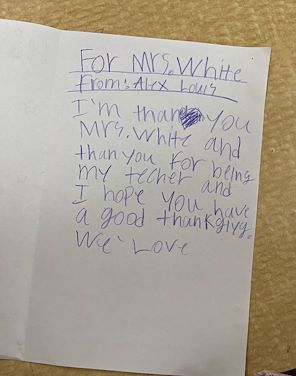 For Mrs. White
From: Alex Louis
I'm than you
Mrs. White and
than you for being
my techer and
I hope you have
a good thankgiyg.
We Love